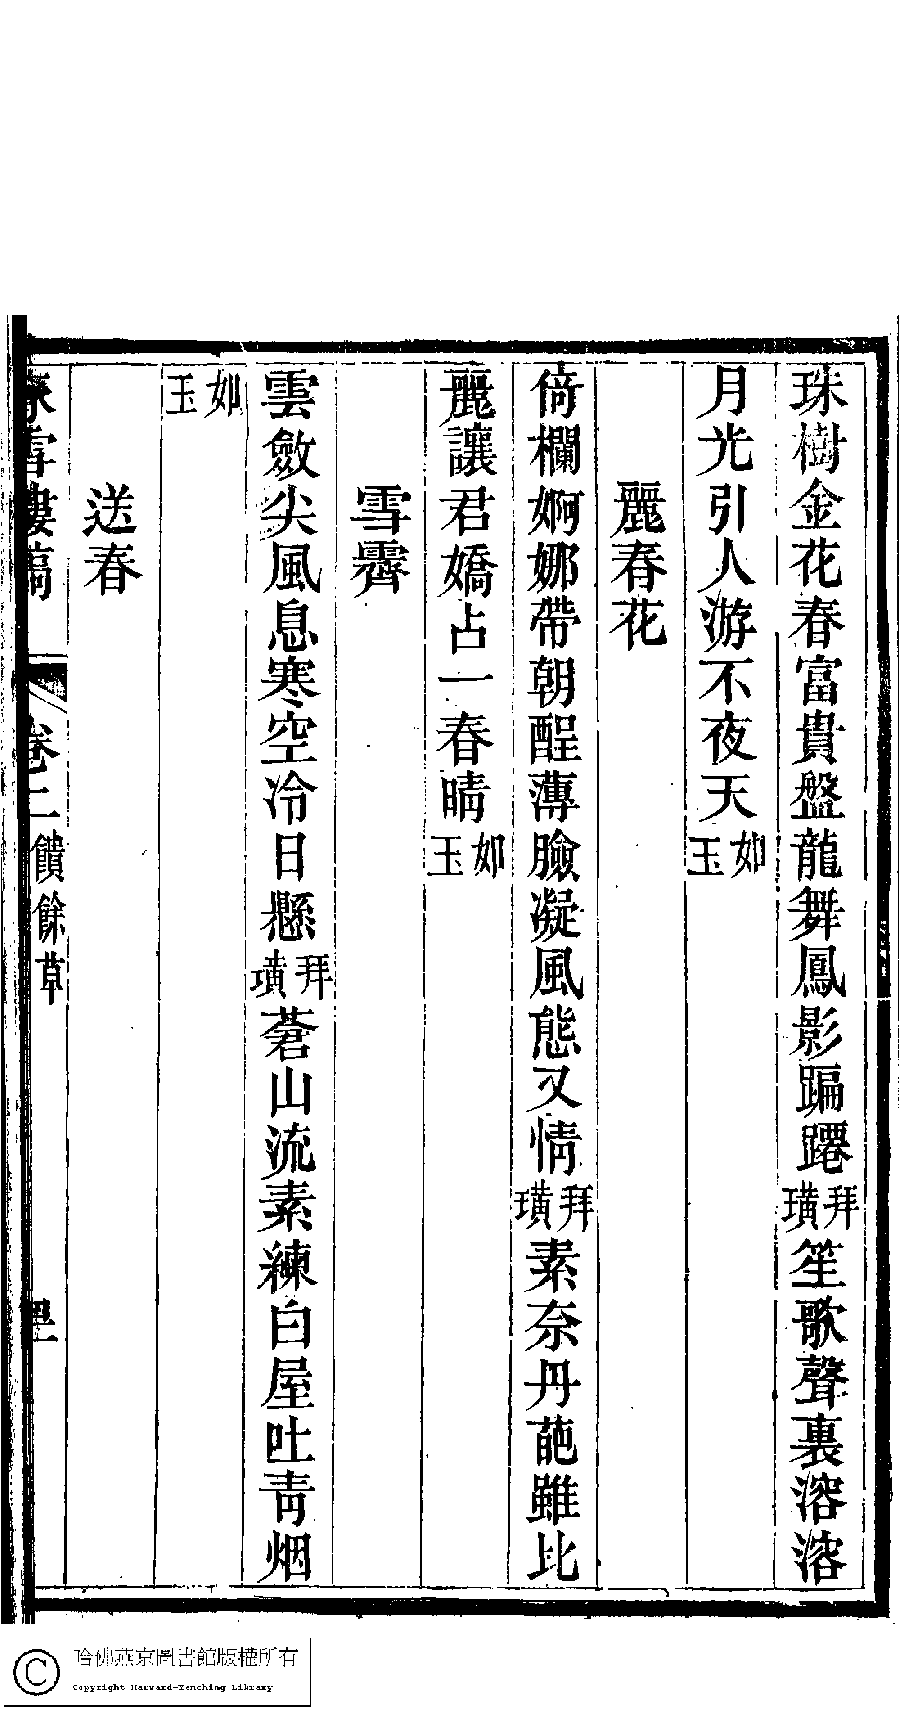 珠樹金花春富貴盤龍舞鳳影蹁躚拜璜笙歌聲裏溶溶
月光引人游不夜天如玉
麗春花
倚欄婀娜帶朝酲薄臉凝風態又情拜璜素奈丹葩雖比
麗讓君嬌占一春晴如玉
雪霽
雲斂尖風息寒空冷日懸拜璜蒼山流素練白屋吐青烟
如玉
送春
雪樓稿 卷二 饋餘草
哈佛燕京圖書館版權所有
Copyright Harvard-Yenching Library